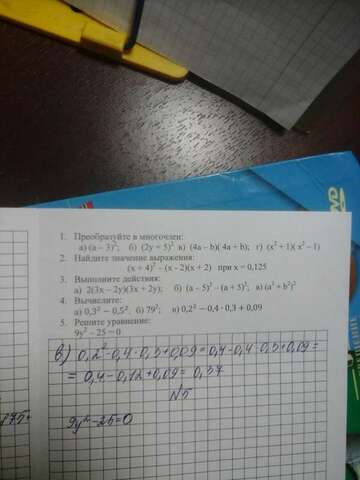 1. Преобразуйте в многочлен:
а) (а – 3)²; б) (2у + 5)² в) (4а – b)( 4а + b); г) (x² + 1)( x² – 1)
2. Найдите значение выражения:
(x + 4)² – (x – 2)(x + 2) при x = 0,125
3. Выполните действия:
а) 2(3x – 2y)(3x + 2y); б) (а – 5)² – (а + 5)²; в) (а³ + b²)²
4. Вычислите:
а) 0,3² – 0,5²; б) 79²; в) 0,2² – 0,4 · 0,3 + 0,09
5. Решите уравнение:
9y² – 25 = 0
в) 0,2² - 0,4 · 0,3 + 0,09 = 0,4 - 0,4 · 0,3 + 0,09 =
= 0,4 - 0,12 + 0,09 = 0,37
№5
9y² - 25 = 0